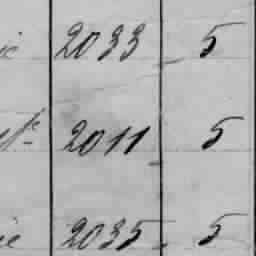 ie 2033 5
2011 5
ie 2035 5